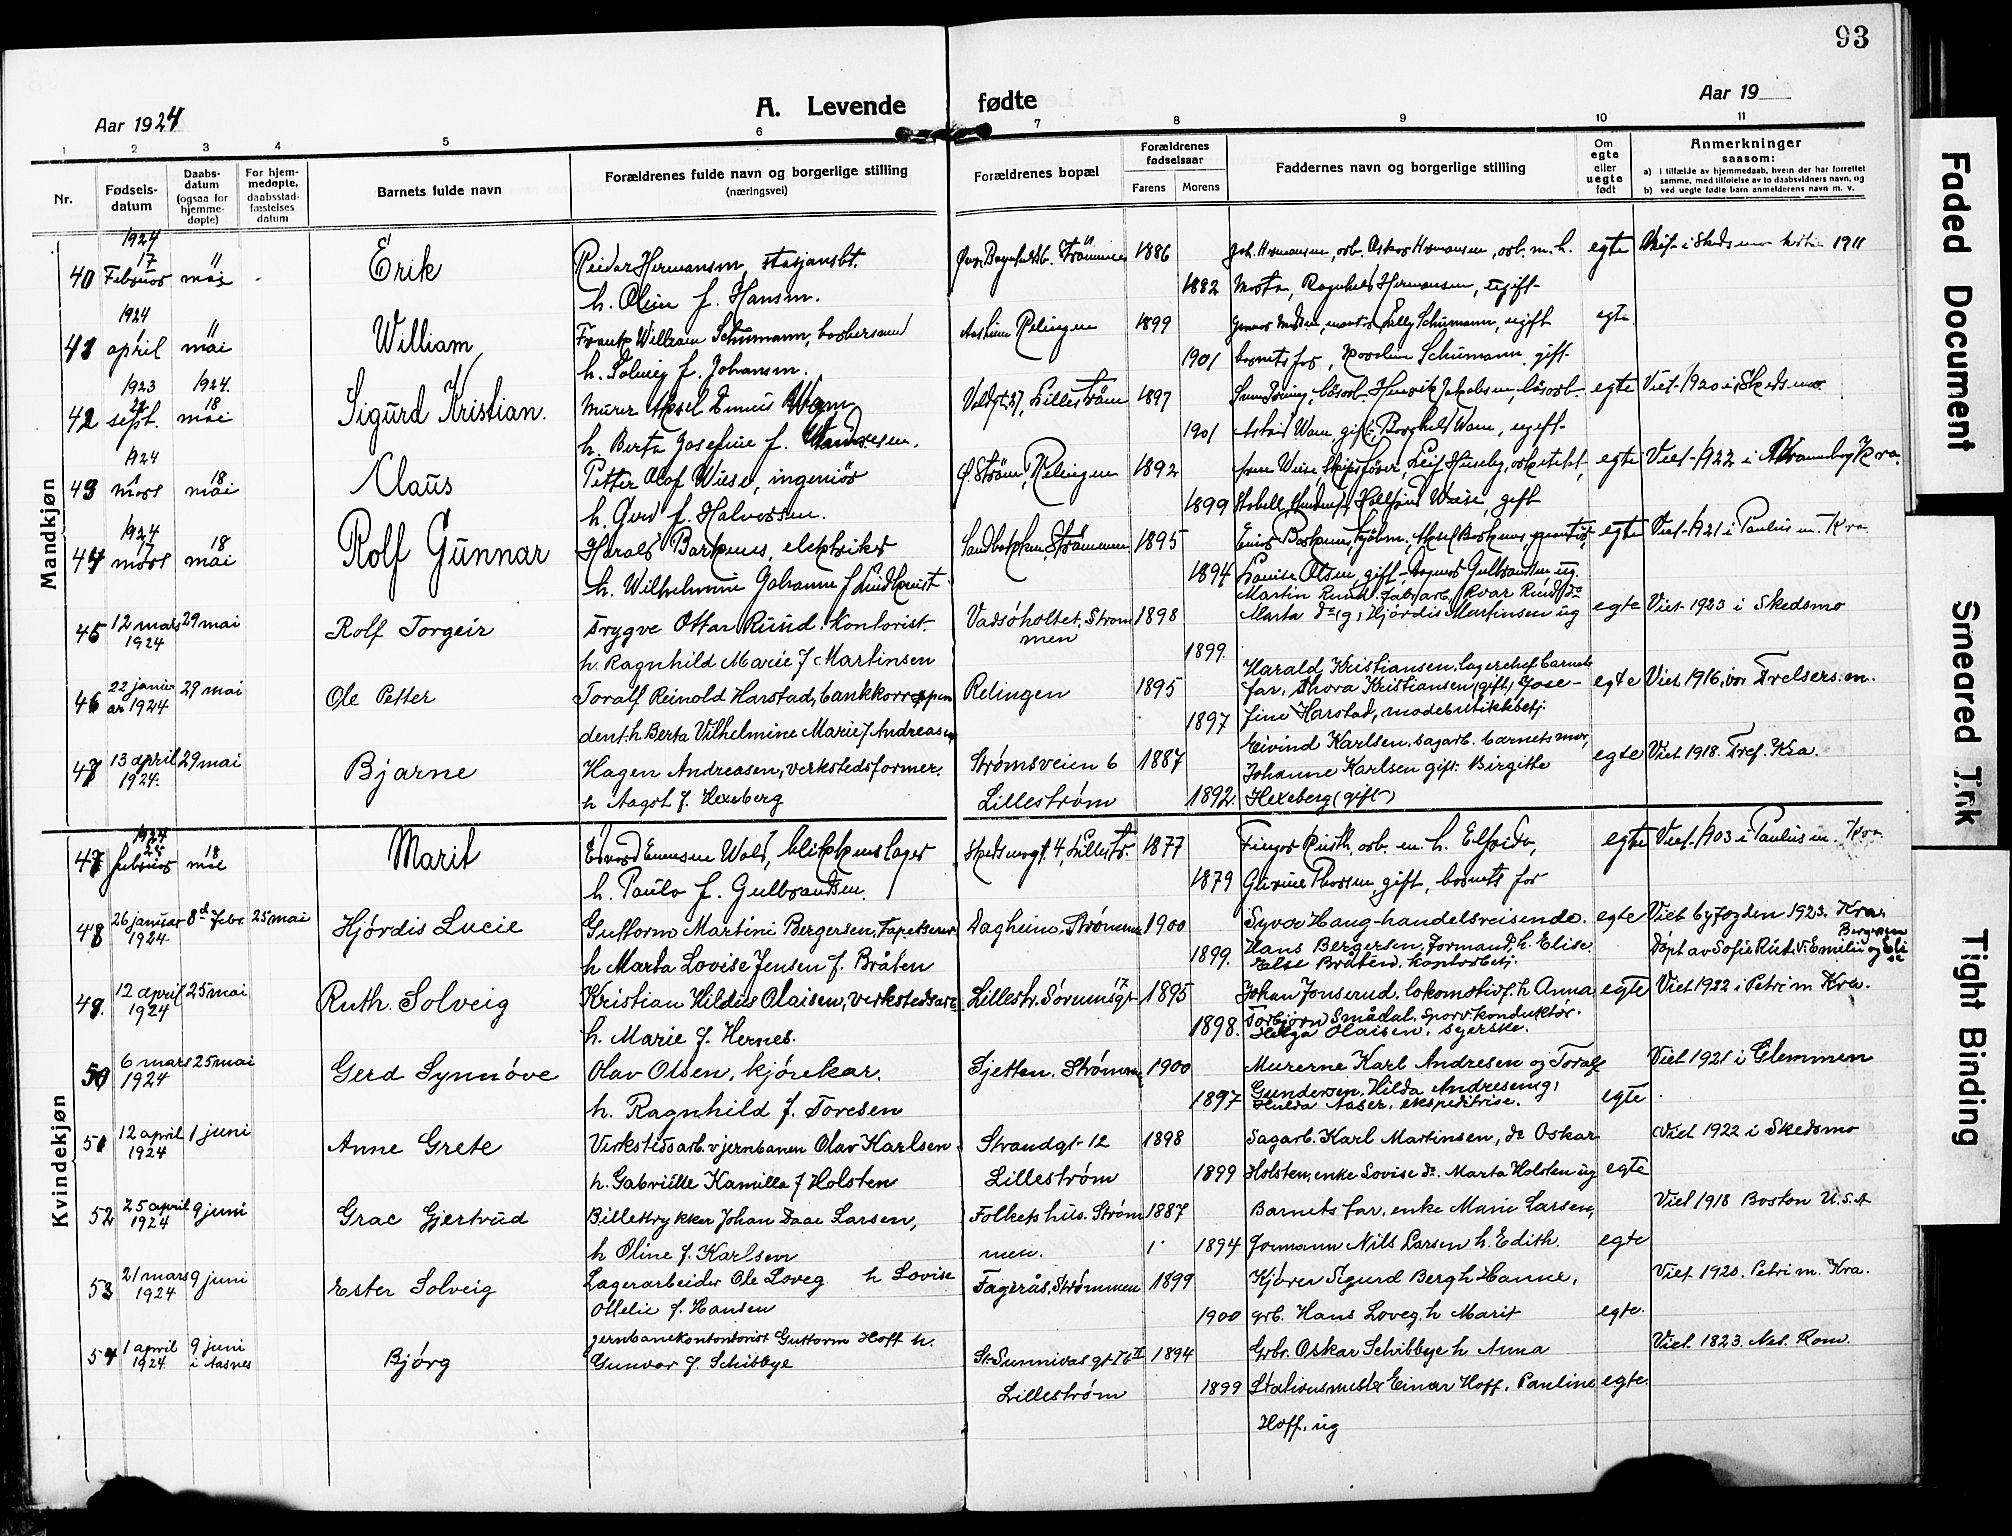 93
A. Levende fødte
Aar 1924
Aar 19
1 2 3 4 5 6 7 8 9 10 11
Nr.
Fødsels-
datum
Daabs-
datum
(ogsaa for
hjemme-
døpte)
For hjem-
medøpte,
daabsstad-
fæstelses
datum
Barnets fulde navn
Forældrenes fulde navn og borgerlige stilling
(næringsvei)
Forældrenes bopæl
Forældrenes
fødselsaar
Farens Morens
Faddernes navn og borgerlige stilling
Om
egte
eller
uegte
født
Anmerkninger
saasom:
a) i tilfælde av hjemmedaab, hvem der har forrettet
samme, med tilføielse av to daabsvidners navn, og
b) ved uegte fødte barn anmelderens navn m. v.
Mandkjøn
1924
40 17 Februar 11 mai Erik Reidar Hermansen, stasjonsbt. Strømmen 1886 Joh. Hermansen, arb. Oskar Hermansen, arb. m. h. egte Viet i Skedsmo 1911
h. Oline f. Hansen. 1882 Marta, Ragnhild Hermansen, ugift
1924
41 april 11 mai William Frank William Schumann, barbersvend Relingen 1899 Lilly Schumann, ugift egte
h. Solveig f. Johansen. 1901 barnets far, Schumann, gift.
1923 1924.
42 sept. 18 mai Sigurd Kristian. Murer Aksel Wam Voldgt. 37, Lillestrøm 1897 Henrik Jakobsen, egte Viet 1920 i Skedsmo
h. Berta Josefine f. Andresen. 1901 Astrid Wam gift, Borghild Wam, ugift
1924
43 mars 18 mai Claus Petter Olaf Wiese, ingeniør Ø. Strøm, Relingen 1892 Wiese, Skipsfører, Leif Huseby, arkitekt, egte Viet 1922 i Kra.
h. Gerd f. Halvorsen. 1899 Wiese, gift
1924
44 17 mars 18 mai Rolf Gunnar Harald Barkenes, elektriker Sandbakken, Strømmen 1895 egte Viet 1921 i Paulus m. Kra
h. Wilhelmine Johanne f Lindkvist 1894 Lovise Olsen, gift, Ragna Gulbrandsen ug.
Martin Rund. fabr.arb. Kvar Rund do
45 12 mars 1924 29 mai Rolf Torgeir Trygve Ottar Rund. Kontorist. Vadsøholtet. Strømmen 1898 Marta do (g), Hjørdis Martinsen ug egte Viet 1923 i Skedsmo
h. Ragnhild Marie f Martinsen 1899
Harald Kristiansen, lagerchef barnets
46 22 januar 1924 29 mai Ole Petter Toralf Reinold Harstad, bankkorrespon Relingen 1895 far, Thora Kristiansen (gift) Jose- egte Viet 1916, vor Frelsers m.
dent. h Berta Vilhelmine Marie f Andreasen 1897 fine Harstad, modebutikkbetj.
Eivind Karlsen, sagarb. barnets mor,
47 13 april 1924. 29 mai Bjarne Hagen Andreasen, verkstedsformer. Strømsveien 6 1887 Johanne Karlsen gift. Birgithe egte Viet 1918. Fref. Kra.
h Aagot f. Hexeberg Lillestrøm 1892. Hexeberg (gift)
Kvindekjøn
1924
47 25 februar 18 mai Marit Edvard Wold, blikkenslager Skedsmogt. 4, Lillestr. 1877 Ruth, arb. m. h. Elfrida, egte Viet 1903 i Paulus m. Kra
h. Paula f. Gulbrandsen. 1879 Gurine Thorsen, gift, barnets far
48 26 januar 1924 8de Febr. 25 mai Hjørdis Lucie Guttorm Martini Bergersen, Tapetserer Dagheim, Strømmen 1900 Syver Haug-handelsreisende. egte Viet byfogden 1923. Kra.
h Marta Lovise Jensen f. Bråten 1899. Hans Bergersen, Formand, h. Elise. Else Bråten, kontorbetj. Døpt av Sofie Rut v. Emilie og Bergersen
49. 12 april 1924 25 mai Ruth Solveig Kristian Hildus Olaisen, verkstedsarb. Lillestr. Sørumsgt 17 1895 Johan Jonserud, lokomotivf. h Anna egte Viet 1922 i Petri m Kra.
h. Marie f. Hernes. 1898. Torbjørn Smådal, Sporvkonduktør. Helga Olaisen, syerske.
50 6 mars 1924 25 mai Gerd Synnöve Olav Olsen, kjørekar. Sjetten. Strømmen 1900 Murerne Karl Andresen og Toralf Viet 1921 i Glemmen
h. Ragnhild f. Toresen 1897 Gundersen, Hilda Andresen g, Hulda Aaser, ekspeditrise. egte
51 12 april 1924 1 juni Anne Grete Verkstedsarb. v jernbanen Olav Karlsen Strandgt 12 1898 Sagarb. Karl Martinsen, do Oskar Viet 1922 i Skedsmo
h. Gabrielle Kamilla f Holsten Lillestrøm 1899 Holsten, enke Lovise do. Marta Holsten ug egte
52 25 april 1924 9 juni Grac Gjertrud Billettrykker Johan Daae Larsen, Folkets hus. Strøm 1887 Barnets far, enke Marie Larsen, Viet 1918 Boston U.S.A
h Oline f. Karlsen men. 1894 Formann Nils Larsen h. Edith. egte
53 21 mars 1924 9 juni Ester Solveig Lagerarbeider Ole Loveg h Lovise Fagerås. Strømmen 1899 Kjører Sigurd Berg h Hanne, Viet 1920. Petri m. Kra.
Ottelie f. Hansen 1900 grb. Hans Loveg. h Marit egte.
54 1 april 1924 9 juni i Aasnes Bjørg jernbanekontorist Guttorm Hoff h. St. Sunnivas gt 1894 Grbr. Oskar Schibbye h Anna Viet 1823. Nes. Rom.
Gunvor f. Schibbye Lillestrøm 1899 Stationsmester Einar Hoff. Pauline egte.
Hoff. ug
Faded Document
Smeared Ink
Tight Binding